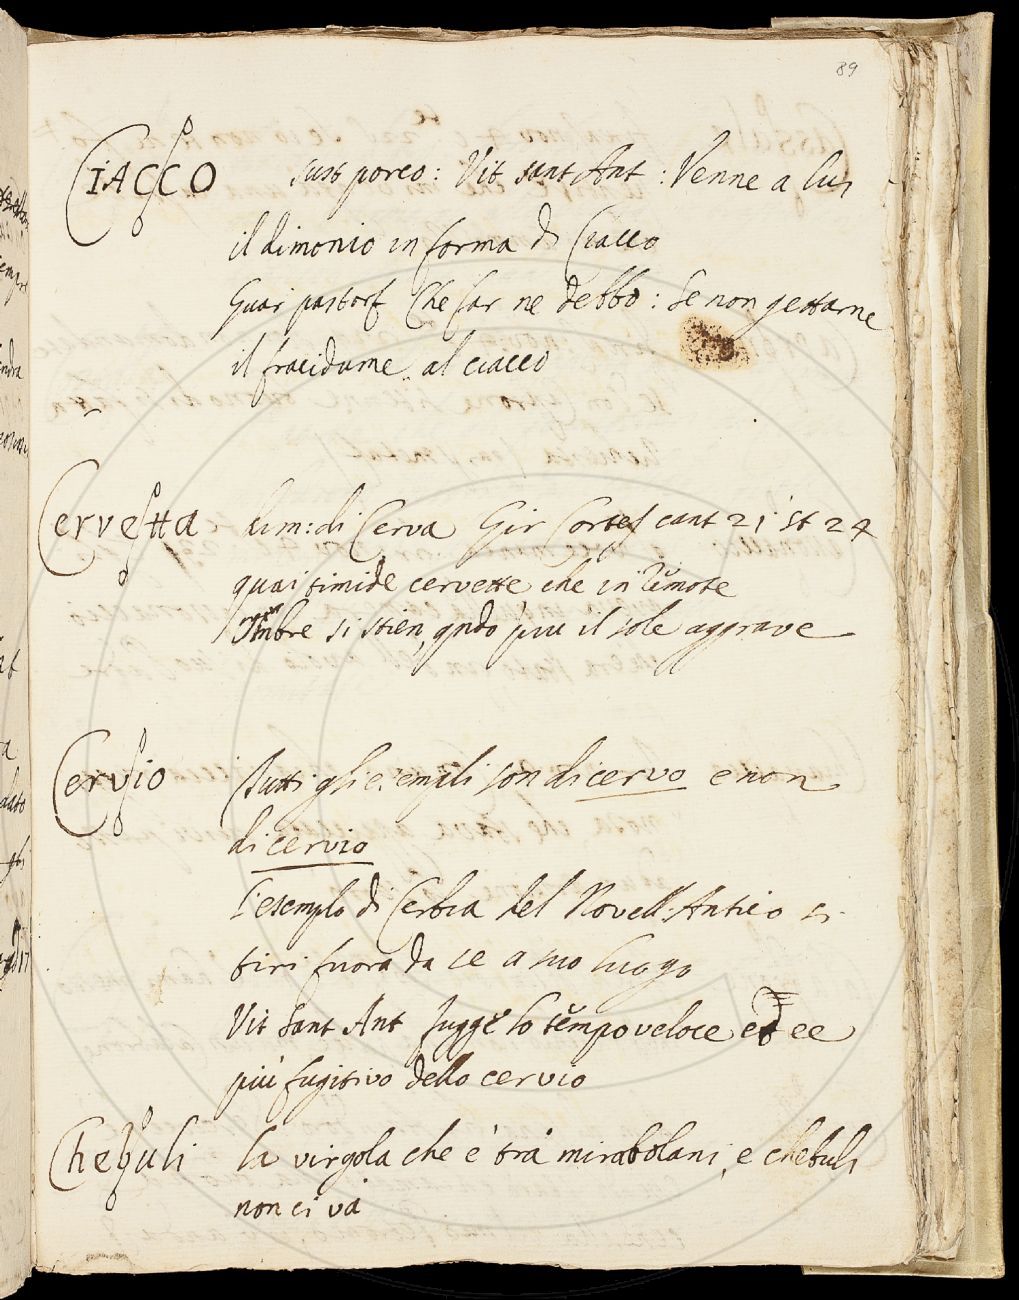 89
CIACCO sust porco: Vit sant Ant: Venne a lui
il dimonio in forma di Ciacco
Guai pastorf Che far ne debbo: Se non gettarne
il fracidume al ciacco
Cervetta dim: di Cerva Gir Cortes cant 21 st 24
quai timide cervette che in remote
Ombre si stien, qndo piu il sole aggrave
Cervio Tutti gli esempli son di cervo e non
di cervio
l'esemplo di Cerbia del Novell: Antico si
tiri fuora da se a suo luogo
Vit Sant Ant fugge lo tempo veloce ed ee
più fugitivo dello cervio
Chebuli la virgola che è trà mirabolani, e chebuli
non ci và